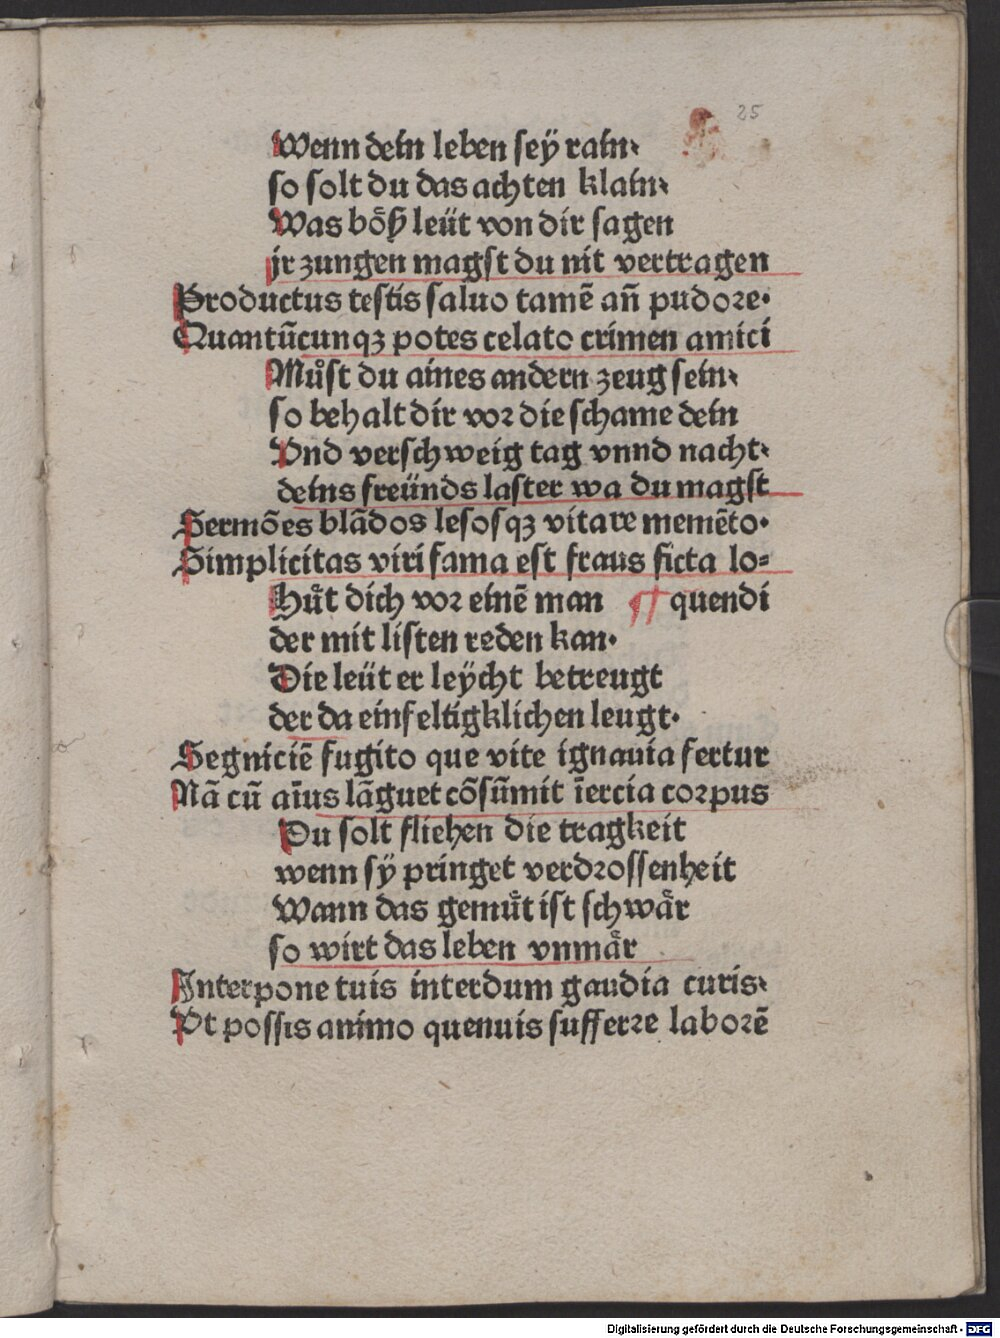 25
Wenn dein leben seÿ rain·
so solt du das achten klain·
Was bo͂ß leüt von dir sagen
jr zungen magst du nit vertragen
Productus testis saluo tamē añ pudore·
Quantūcunqꝫ potes celato crimen amici
Mů̊st du aines andern zeug sein·
so behalt dir vor die schame dein
Vnd verschweig tag vnnd nacht·
deins freünds laster wa du magst
Sermōes blādos lesosqꝫ vitare memēto·
Simplicitas viri fama est fraus ficta lo⸗
Huͤt dich vor einē man ¶ quendi
der mit listen reden kan·
Die leüt er leÿcht betreugt
der da einfeltigklichen leugt·
Segniciē fugito que vite ignauia fertur
Nā cū aīus lāguet cōsūmit īercia corpus
Du solt fliehen die tragkeit
wenn sÿ pringet verdrossenheit
Wann das gemuͤt ist schwaͤr
so wirt das leben vnmaͤr
Interpone tuis interdum gaudia curis·
Vt possis animo quenuis sufferre laborē
Digitalisierung gefördert durch die Deutsche Forschungsgemeinschaft - DFG